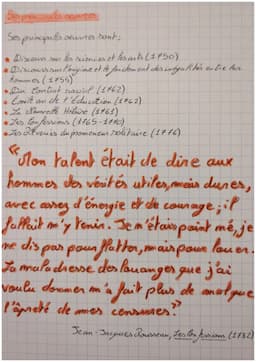 Ses principales œuvres
Ses principales œuvres sont:
• Discours sur les sciences et les arts (1750)
• Discours sur l'origine et le fondement des inégalités entre les
hommes (1755)
• Du Contrat social (1762)
• de l'Éducation (1762)
• La Nouvelle (1761)
• Les Confessions (1765-1770)
• Les rêveries du promeneur solitaire (1776)
"Mon talent était de dire aux
hommes des vérités utiles, mais dures,
avec assez d'énergie et de courage; il
fallait m'y tenir. Je n'étais point né, je
ne dis pas pour flatter, mais pour louer.
La maladresse des louanges que j'ai
voulu donner m'a fait plus de mal que
l'âpreté de mes censures."
Jean-Jacques Rousseau, Les Confessions (1782)